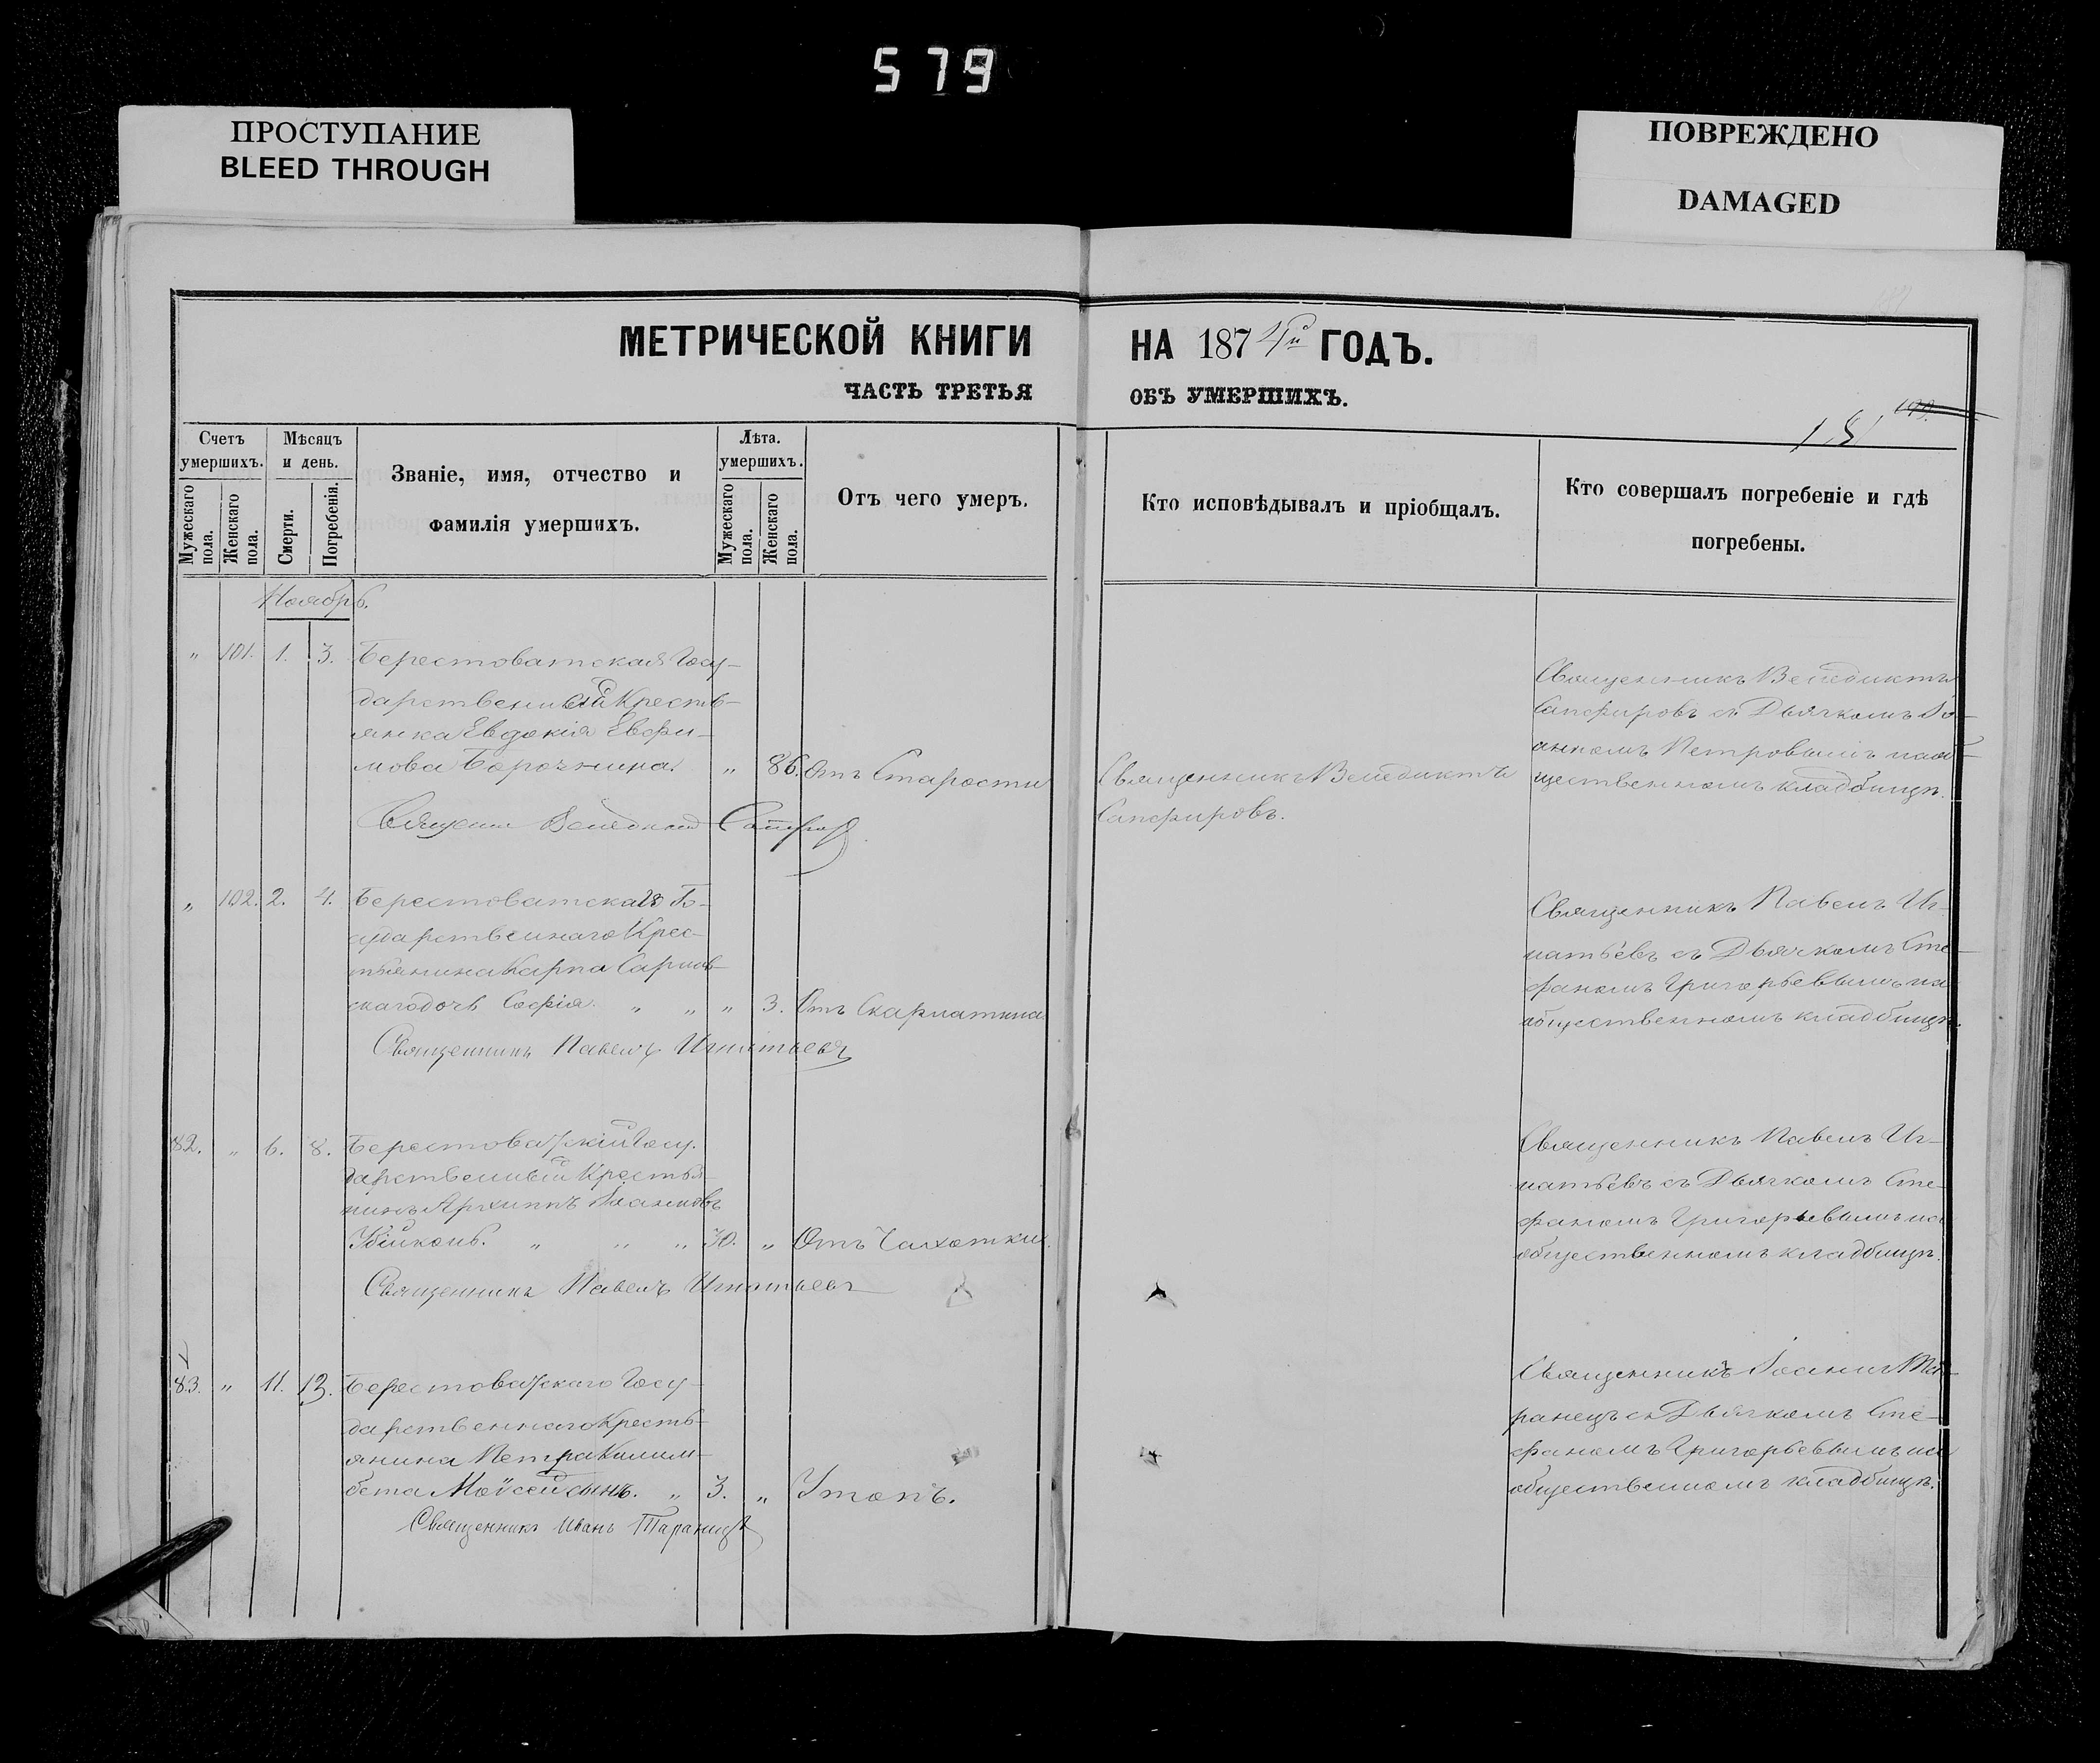 579
ПРОСТУПАНИЕ
BLEED THROUGH
ПОВРЕЖДЕНО
DAMAGED
МЕТРИЧЕСКОЙ КНИГИ НА 1874й ГОДЪ.
ЧАСТЬ ТРЕТЬЯ ОБЪ УМЕРШИХЪ.
Счетъ умершихъ.
Мужескаго пола.
Женскаго пола.
Мѣсяцъ и день.
Смерти.
Погребенія.
Званіе, имя, отчество и
фамилія умершихъ.
Лѣта.
умершихъ.
Мужескаго пола.
Женскаго пола.
Отъ чего умеръ.
Кто исповѣдывалъ и пріобщалъ.
Кто совершалъ погребеніе и гдѣ
погребены.
Ноябрь.
" 101. 1. 3. Берестоватская Госу-
дарственный Кресть-
янка Евдокія Евфи-
мова " 86. Отъ Старости
Священникъ Венедиктъ
Сапфировъ.
Священникъ Венедиктъ
Сапфировъ съ Дьячкомъ Іо-
анномъ Петровымъ на об-
щественномъ кладбищѣ.
" 102. 2. 4. Берестоватскаго Го-
сударственнаго Крес-
тьянина Карпа
скаго дочь Софія. " " " 3. Отъ Скарлатина
Священникъ Павелъ Игнатьевъ
Священникъ Павелъ Иг-
натьевъ съ Дьячкомъ Сте-
фаномъ Григорьевымъ на
общественномъ кладбищѣ.
82. " 6. 8. Берестоватскій Госу-
дарственный Крестья-
нинъ Архиппъ Іоанновъ
" " " 30. " Отъ Чахотки.
Священникъ Павелъ Игнатьевъ
Священникъ Павелъ Иг-
натьевъ съ Дьячкомъ Сте-
фаномъ Григорьевымъ на
общественномъ кладбищѣ.
83. " 11. 13. Берестоватскаго Госу-
дарственнаго Кресть-
янина Петра Килим-
бета Моисей сынъ. " 3. " Утопъ.
Священникъ Иванъ Таранецъ
Священникъ Іоаннъ Та-
ранецъ съ Дьячкомъ Сте-
фаномъ Григорьевымъ на
общественномъ кладбищѣ.